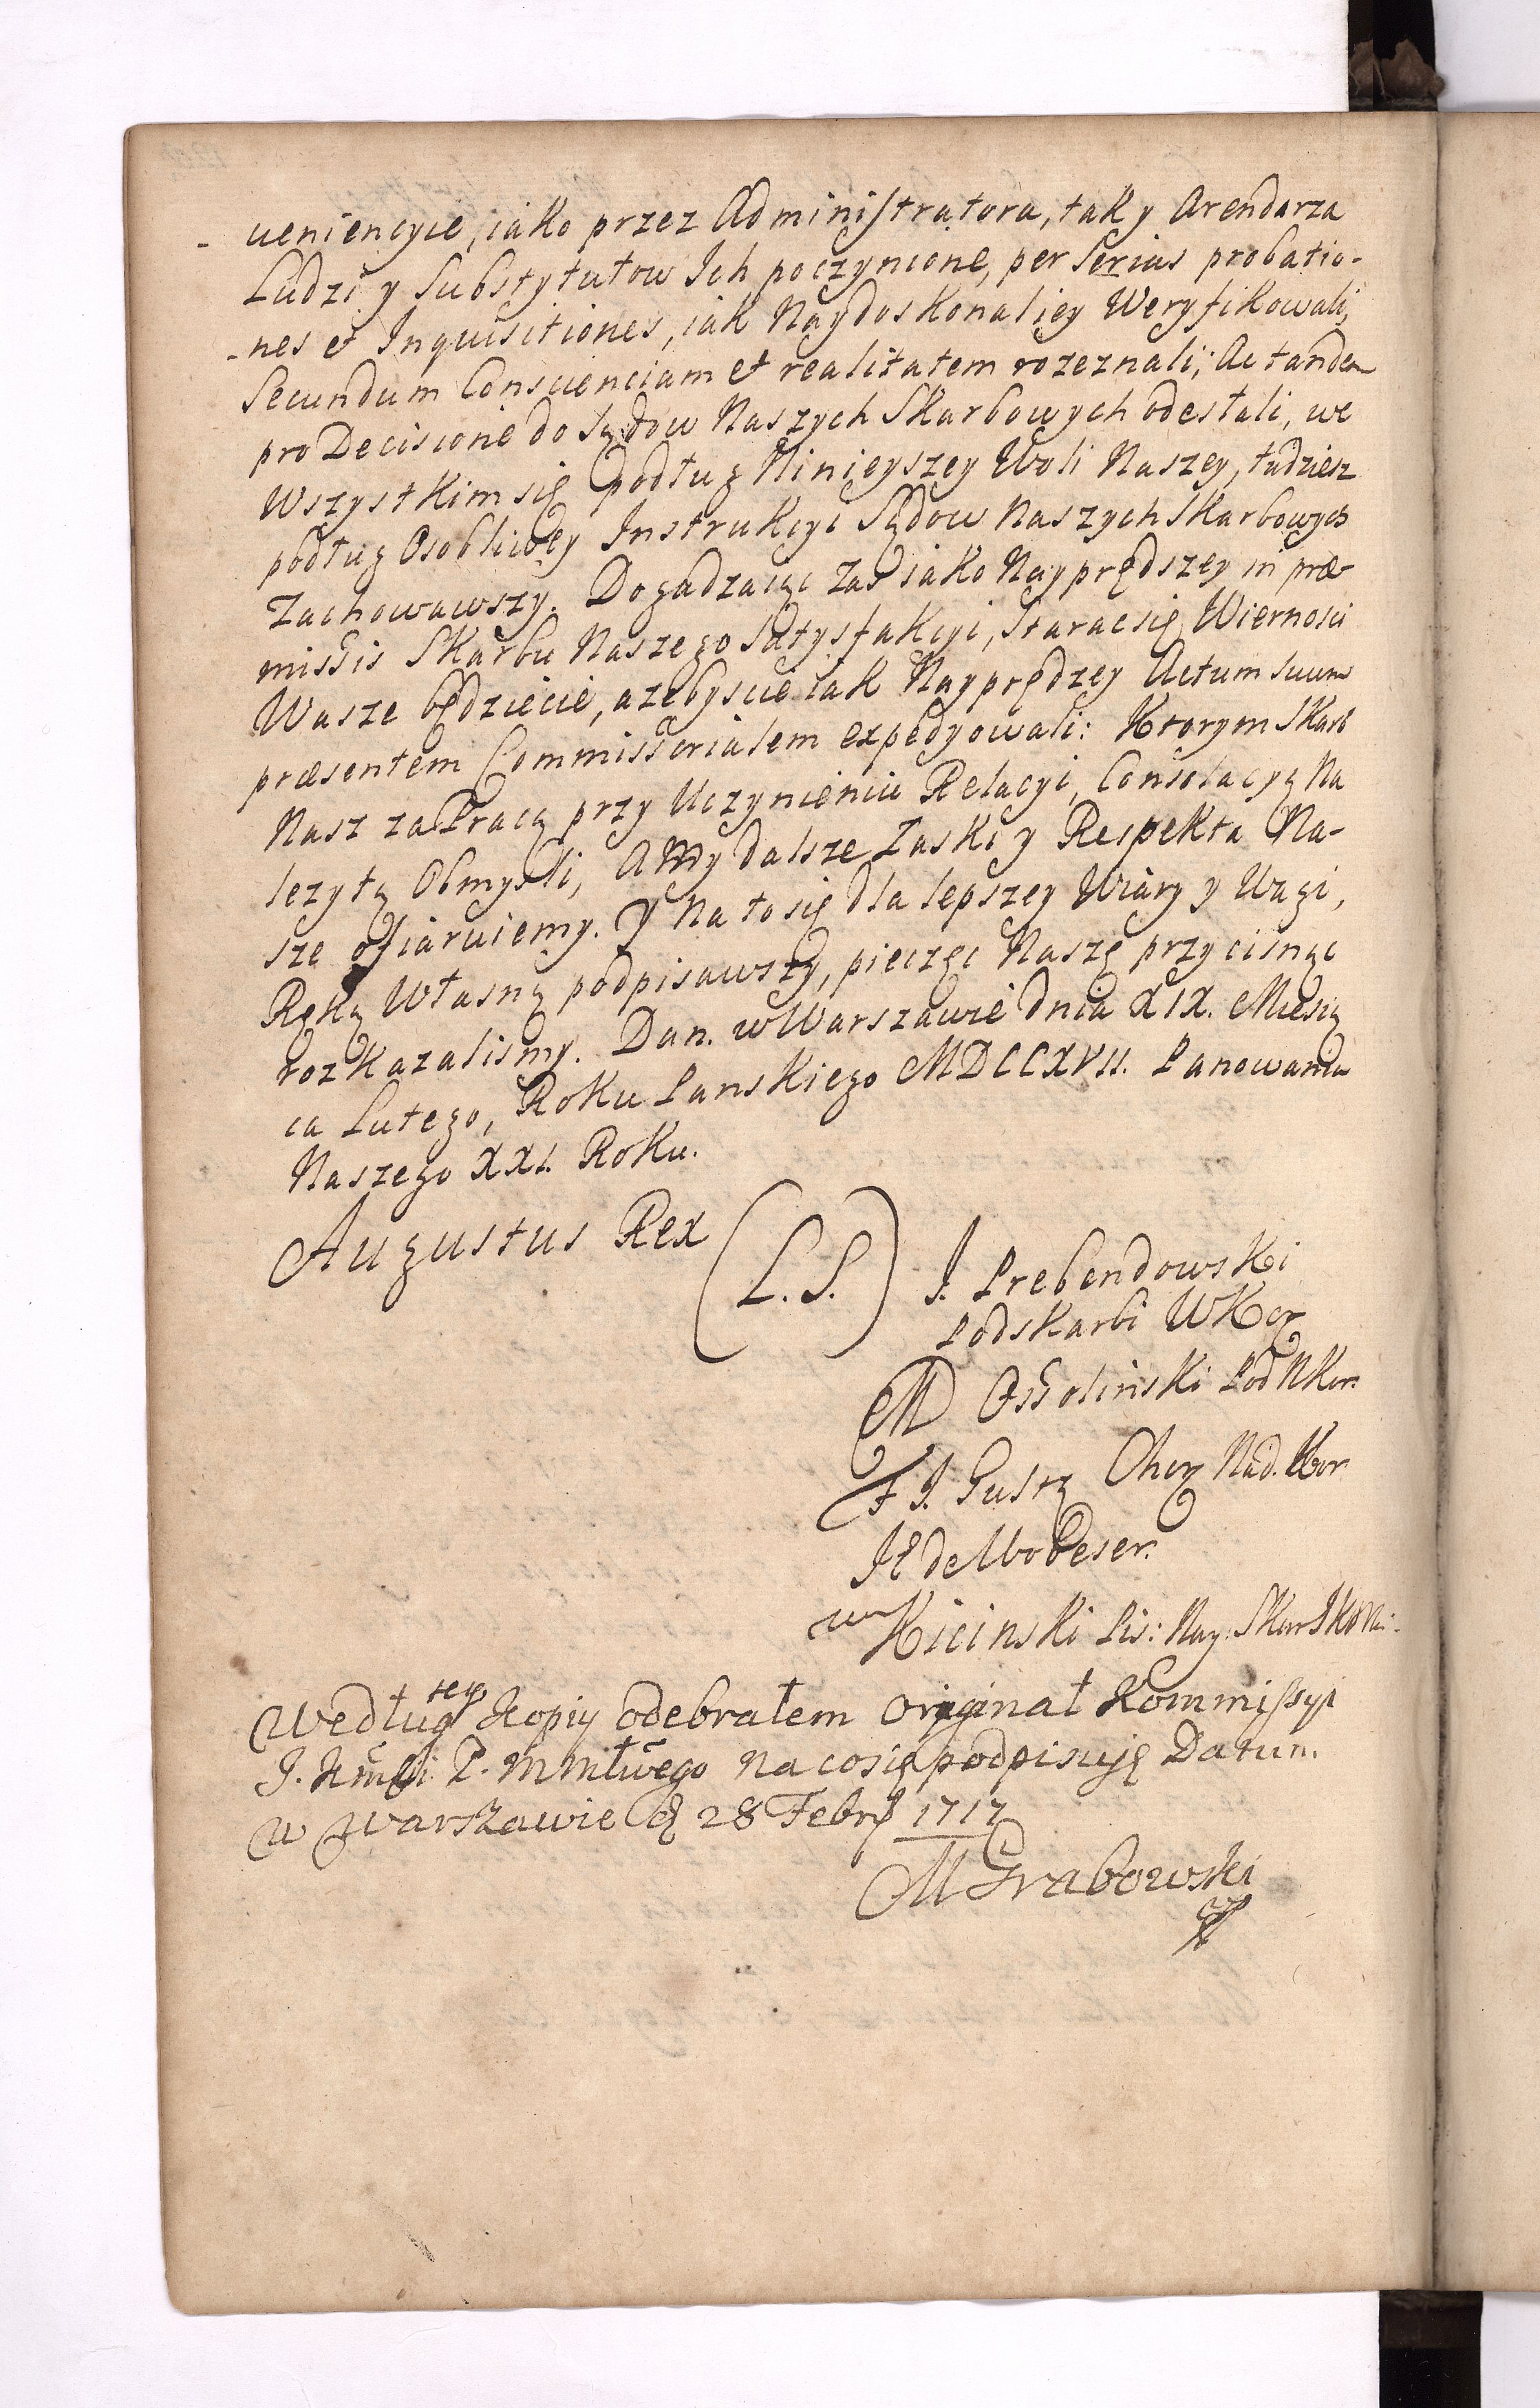 - ueniencyie, iako przez Administratora, tak y Arendarza
Ludzi y Substytutow Ich poczynione, per serias probatio-
-nes et Inquisitiones, iak Naydoskonaliey Weryfikowali,
Secundum Conscienciam et realitatem rozeznali; Ac tandem
pro Decisione do Sądow Naszych Skarbowych odesłali, we
wszystkim się podług Ninieyszey Woli Naszey, tudziesz
podług Osobliwey Instrukcyi Sądow Naszych Skarbowych
Zachowawszy. Dogadzaiąc Zas iako Nayprędszey in præ-
missis Skarbu Naszego Satysfakcyi, Starac się Wiernosci
Wasze będziecie, azebyscie iak Nayprędzey Actum suum
præsentem Commissorialem expedyowali: Ktorym Skarb
Nasz za Pracą przy Uczynieniu Relacyi, Consolacyą Na
lezytą Obmysli, A My dalsze Łaski y Respekta Na-
sze ofiaruiemy. Y Na to się dla lepszey Wiary y Wagi,
Ręką Własną podpisawszy, pieczęc Naszę przycisnąc
rozkazalismy. Dan. w Warszawie dnia XIX. Miesią
ca Lutego, Roku Panskiego MDCCXVII. Panowania
Naszego XXI. Roku.
Augustus Rex (L.S.) J. Prebendowski
Podskarbi WKor
M Ossolinski Pod NKor.
F J. Gustą Chor Nad. Kor.
de Wobeser.
Kicinski Pis: Nay: Skar JKM
Według tey Kopiy odebrałem originał Kommissyi
J. Kmści P. M Młwego na co się podpisuię Datum.
w Warszawie d 28 Febr 1717
M Grabowski